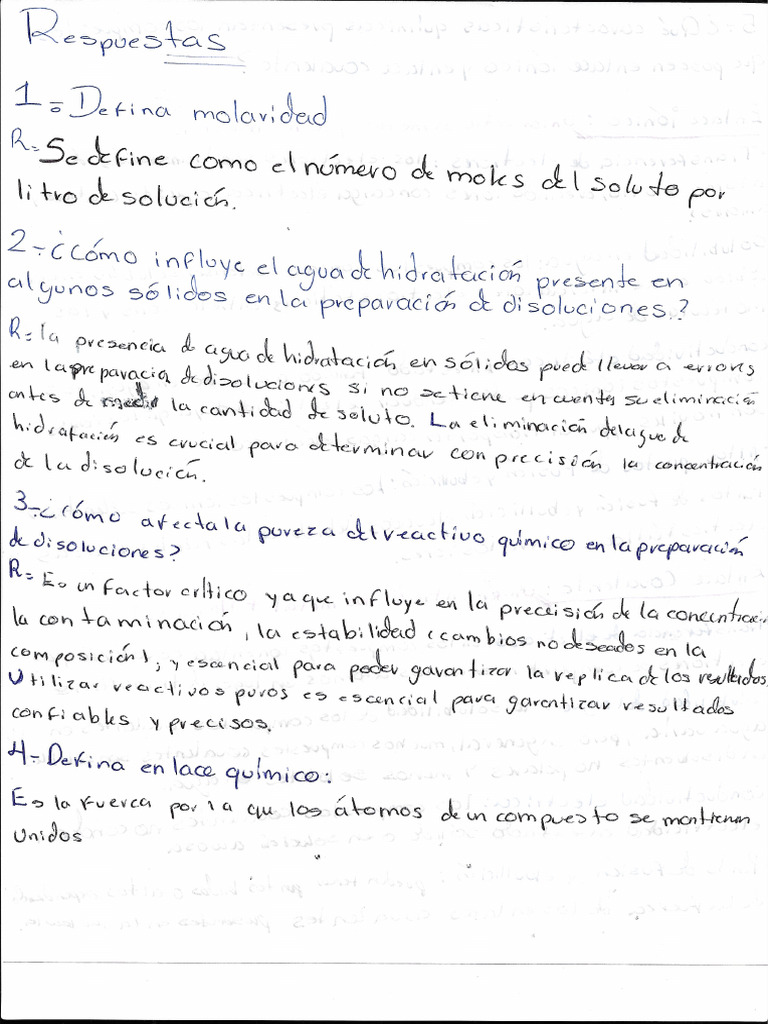 Respuestas
1= Defina molaridad
R= Se define como el número de moles del soluto por
litro de solución.
2-¿Cómo influye el agua de hidratación presente en
algunos sólidos en la preparación de disoluciones.?
R= la presencia de agua de hidratación en sólidos puede llevar a errores
en la preparacia de disoluciones si no se tiene en cuenta su eliminación
antes de la cantidad de soluto. La eliminación del agua de
hidratación es crucial para determinar con precisión la concentración
de la disolución.
3-¿cómo afecta la pureza del reactivo químico en la preparación
de disoluciones?
R= Es un factor crítico ya que influye en la precisión de la concentración
la contaminación, la estabilidad (cambios no deseados en la
composición), y escencial para poder garantizar la replica de los resultados,
Utilizar reactivos puros es escencial para garantizar resultados
confiables y precisos.
4- Defina enlace químico:
Es la fuerca por la que los átomos de un compuesto se mantienen
unidos